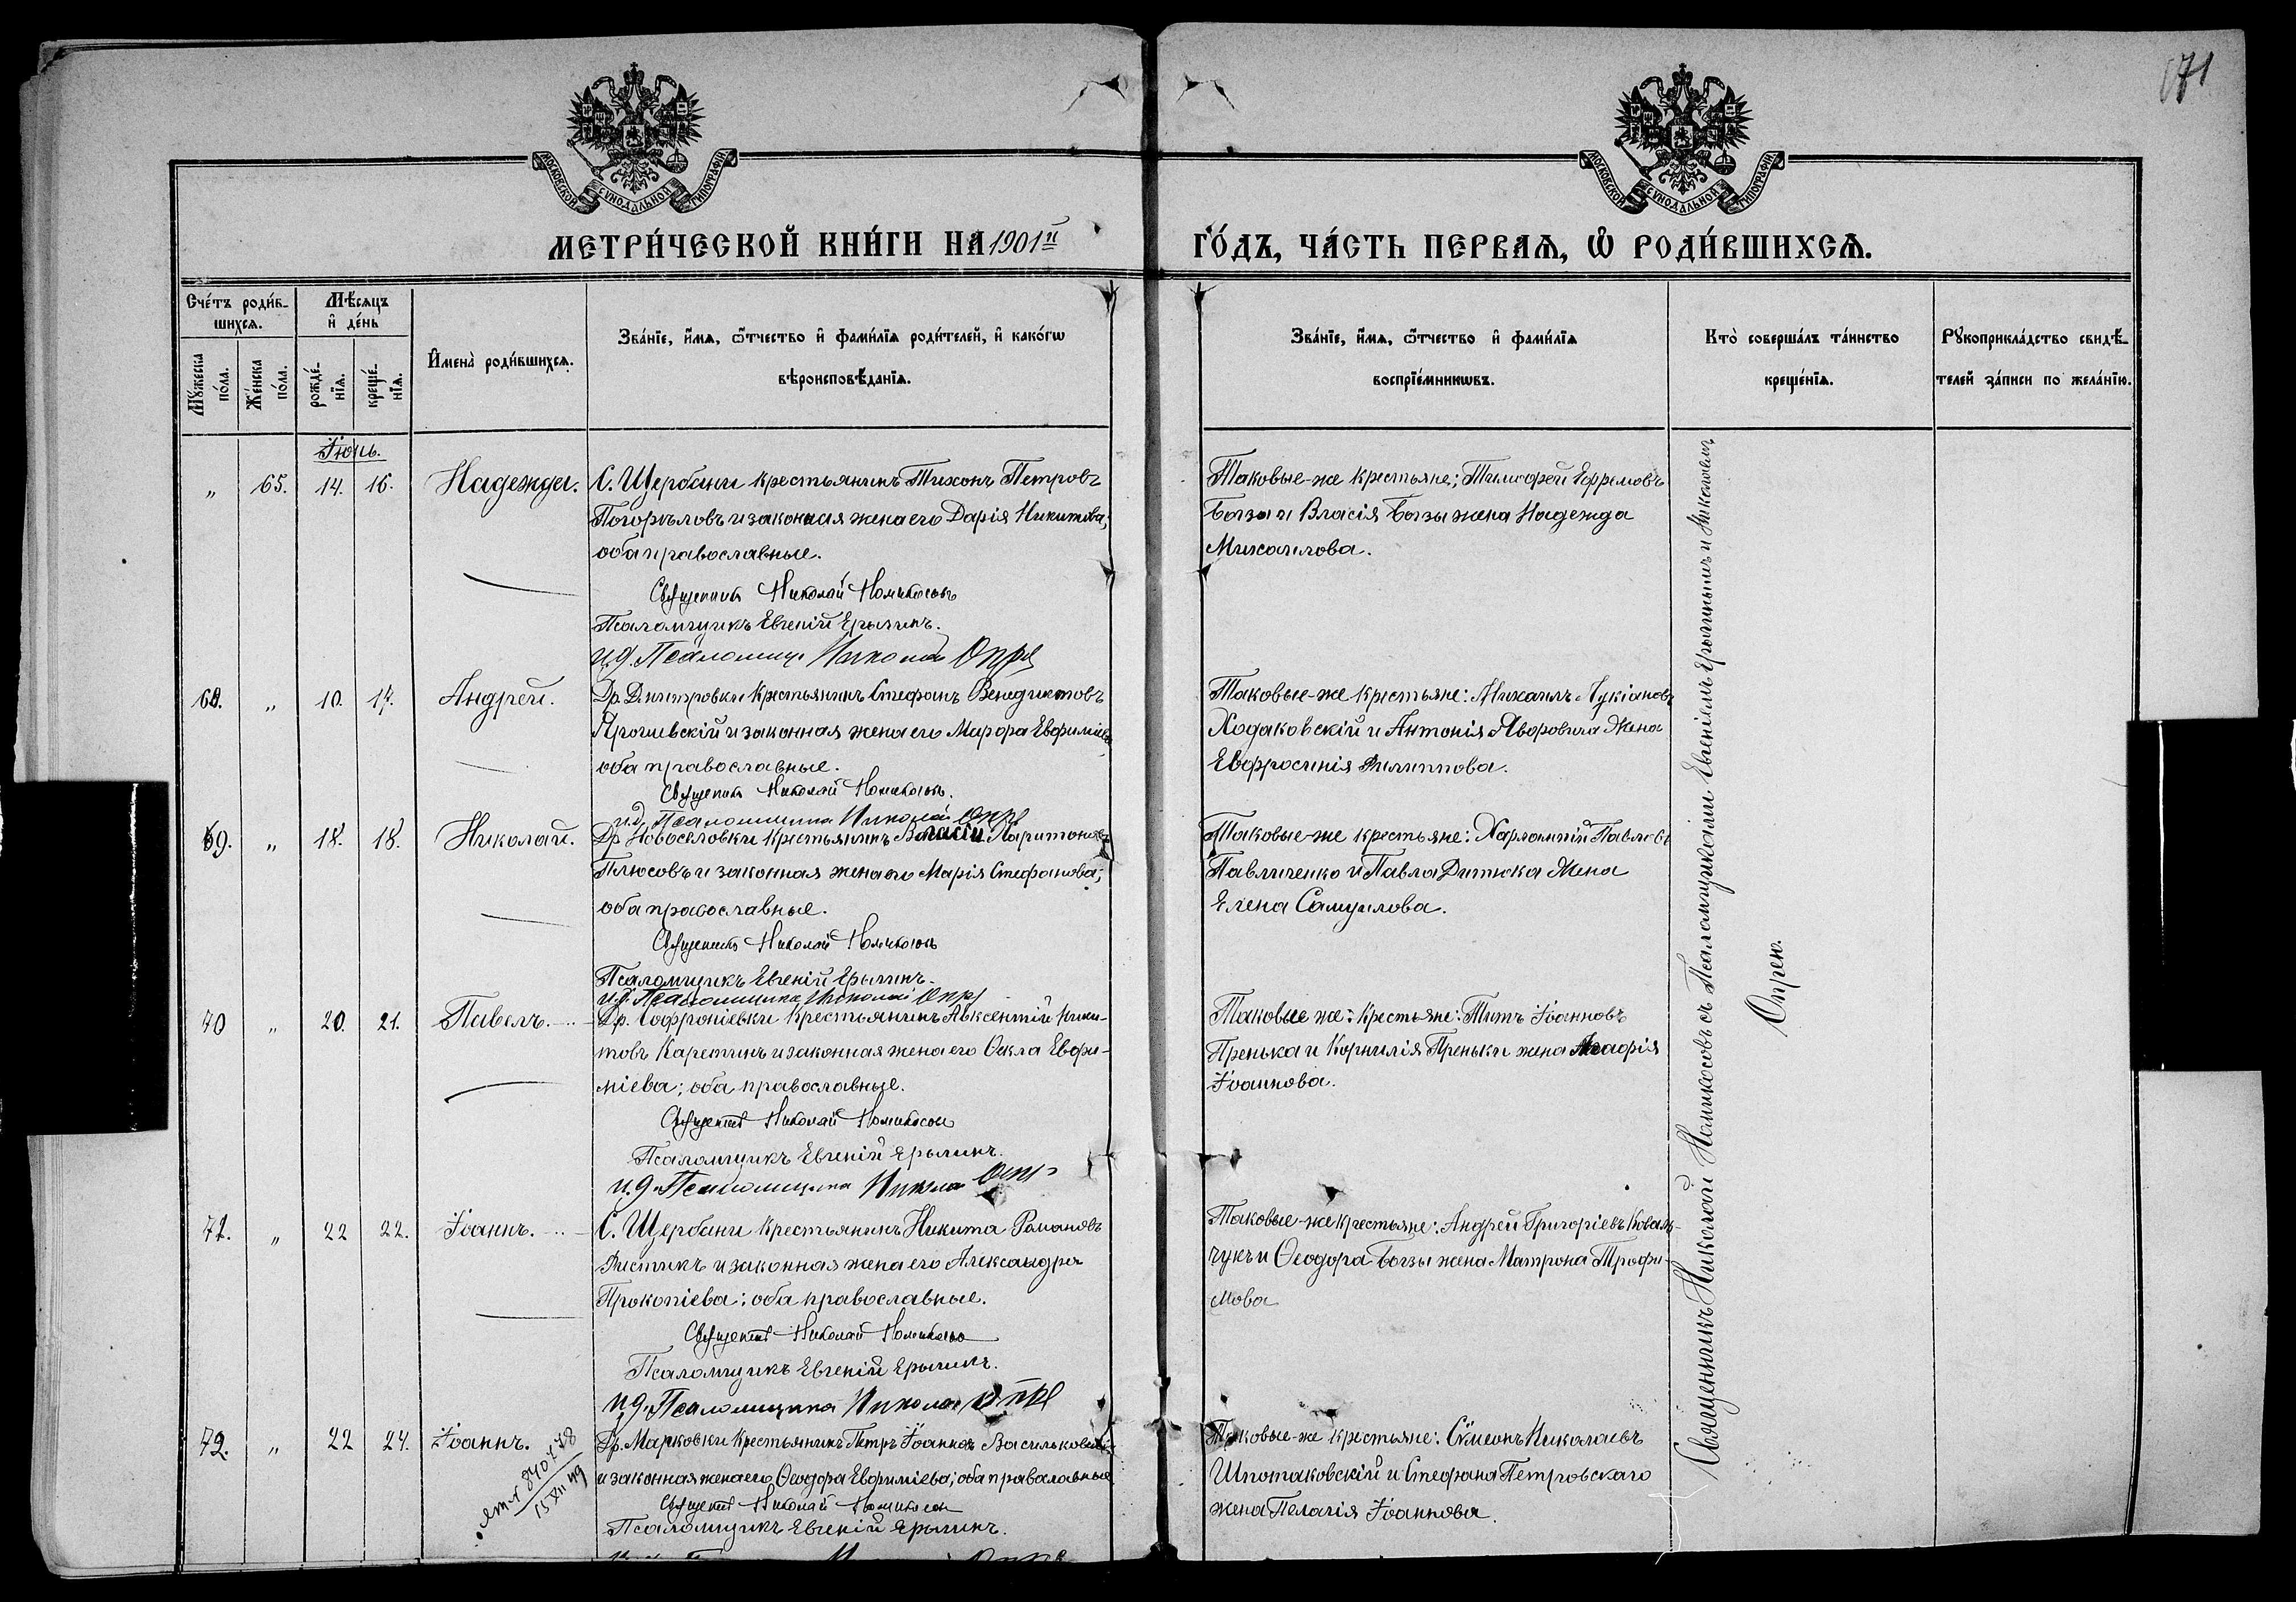 171
МОСКОВСКОЙ СѴНОДАЛЬНОЙ ТИПОГРАФІИ
МОСКОВСКОЙ СѴНОДАЛЬНОЙ ТИПОГРАФІИ
МЕТРИ́ЧЕСКОЙ КНИ́ГИ НА 1901й
ГО́ДЪ, ЧА́СТЬ ПЕРВАѦ, Ѡ РОДИ́ВШИХСѦ.
Сче́тъ роди́в-
шихсѧ.
Мѣ́сяцъ
и҆ де́нь
Мꙋ́жеска
по́ла.
Же́нска
по́ла.
рожде́-
нїѧ.
креще́-
нїѧ.
И҆мена̀ роди́вшихсѧ.
Зва́нїе, и҆́мѧ, ѻ҆́тчество и҆ фами́лїѧ роди́телей, и҆ како́гѡ
вѣроисповѣ́данїѧ.
Зва́нїе, и҆́мѧ, ѻ҆́тчество и҆ фами́лїѧ
воспрїе́мникѡвъ.
Кто̀ соверша́лъ та́инство
креще́нїѧ.
Рꙋкоприкла́дство свидѣ́-
телей за́писи по жела́нїю.
Іюнь.
„ 65. 14. 16. Надежда. С. Щербани крестьянинъ Тихонъ Петровъ
Погорѣловъ и законная жена его Дарія Никитова;
оба православные.
Священникъ Николай Номикосовъ
Псаломщикъ Евгеній Ерылинъ.
и.д. Псаломщ. Николай Опря
Таковые-же крестьяне; Тимофей Ефремовъ
Богзы и Власія Богзы жена Надежда
Михаилова.
68. „ 10. 17. Андрей. Др. Дмитровки крестьянинъ Стефанъ Венедиктовъ
и законная жена его Евфиміева
оба православные.
Священникъ Николай Номикосовъ.
и.д. Псаломщика Николай Опря
Таковые-же крестьяне: Михаилъ Лукіановъ
Ходаковскій и Антонія Яворовича жена
Евфросинія Филиппова.
69. „ 18. 18. Николай. Др. Новоселовки крестьянинъ Власій Харитоновъ
Плюсовъ и законная жена его Марія Стефанова;
оба православные.
Священникъ Николай Номикосовъ
Псаломщикъ Евгеній Ерылинъ.
и.д. Псаломщика Николай Опря
Таковые-же крестьяне: Харлампій Павловъ
Павличенко и Павла Дитюка жена
Елена Самуилова.
70 „ 20. 21. Павелъ. Др. Софроніевки крестьянинъ Авксентій Ники-
товъ Каретинъ и законная жена его Ѳекла Евфи-
міева; оба православные.
Священникъ Николай Номикосовъ
Псаломщикъ Евгеній Ерылинъ.
и.д. Псаломщика Николай Опря
Таковые же: крестьяне: Титъ Іоанновъ
Пренька и Корнилія Преньки жена Агафія
Іоаннова.
71. „ 22 22. Іоаннъ. С. Щербани крестьянинъ Никита Романовъ
Фистикъ и законная жена его Александра
Прокопіева; оба православные.
Священникъ Николай Номикосовъ
Псаломщикъ Евгеній Ерылинъ.
и.д. Псаломщика Николай Опря
Таковые-же крестьяне: Андрей Григоріевъ Коваль-
чукъ и Ѳеодора Богзы жена Матрона Трофи-
мова
72. „ 22 24. Іоаннъ. Др. Марковки крестьянинъ Петръ Іоанновъ
и законная жена его Ѳеодора Евфиміева; оба православные
Священникъ Николай Номикосовъ
Псаломщикъ Евгеній Ерылинъ.
840778
15 XII 49
Таковые-же крестьяне: Сѵмеонъ Николаевъ
Шпотаковскій и Стефана Петровскаго
жена Пелагія Іоаннова.
Священникъ Николай Номикосовъ съ Псаломщиками Евгеніемъ Ерылинымъ и Николаемъ
Опрею.